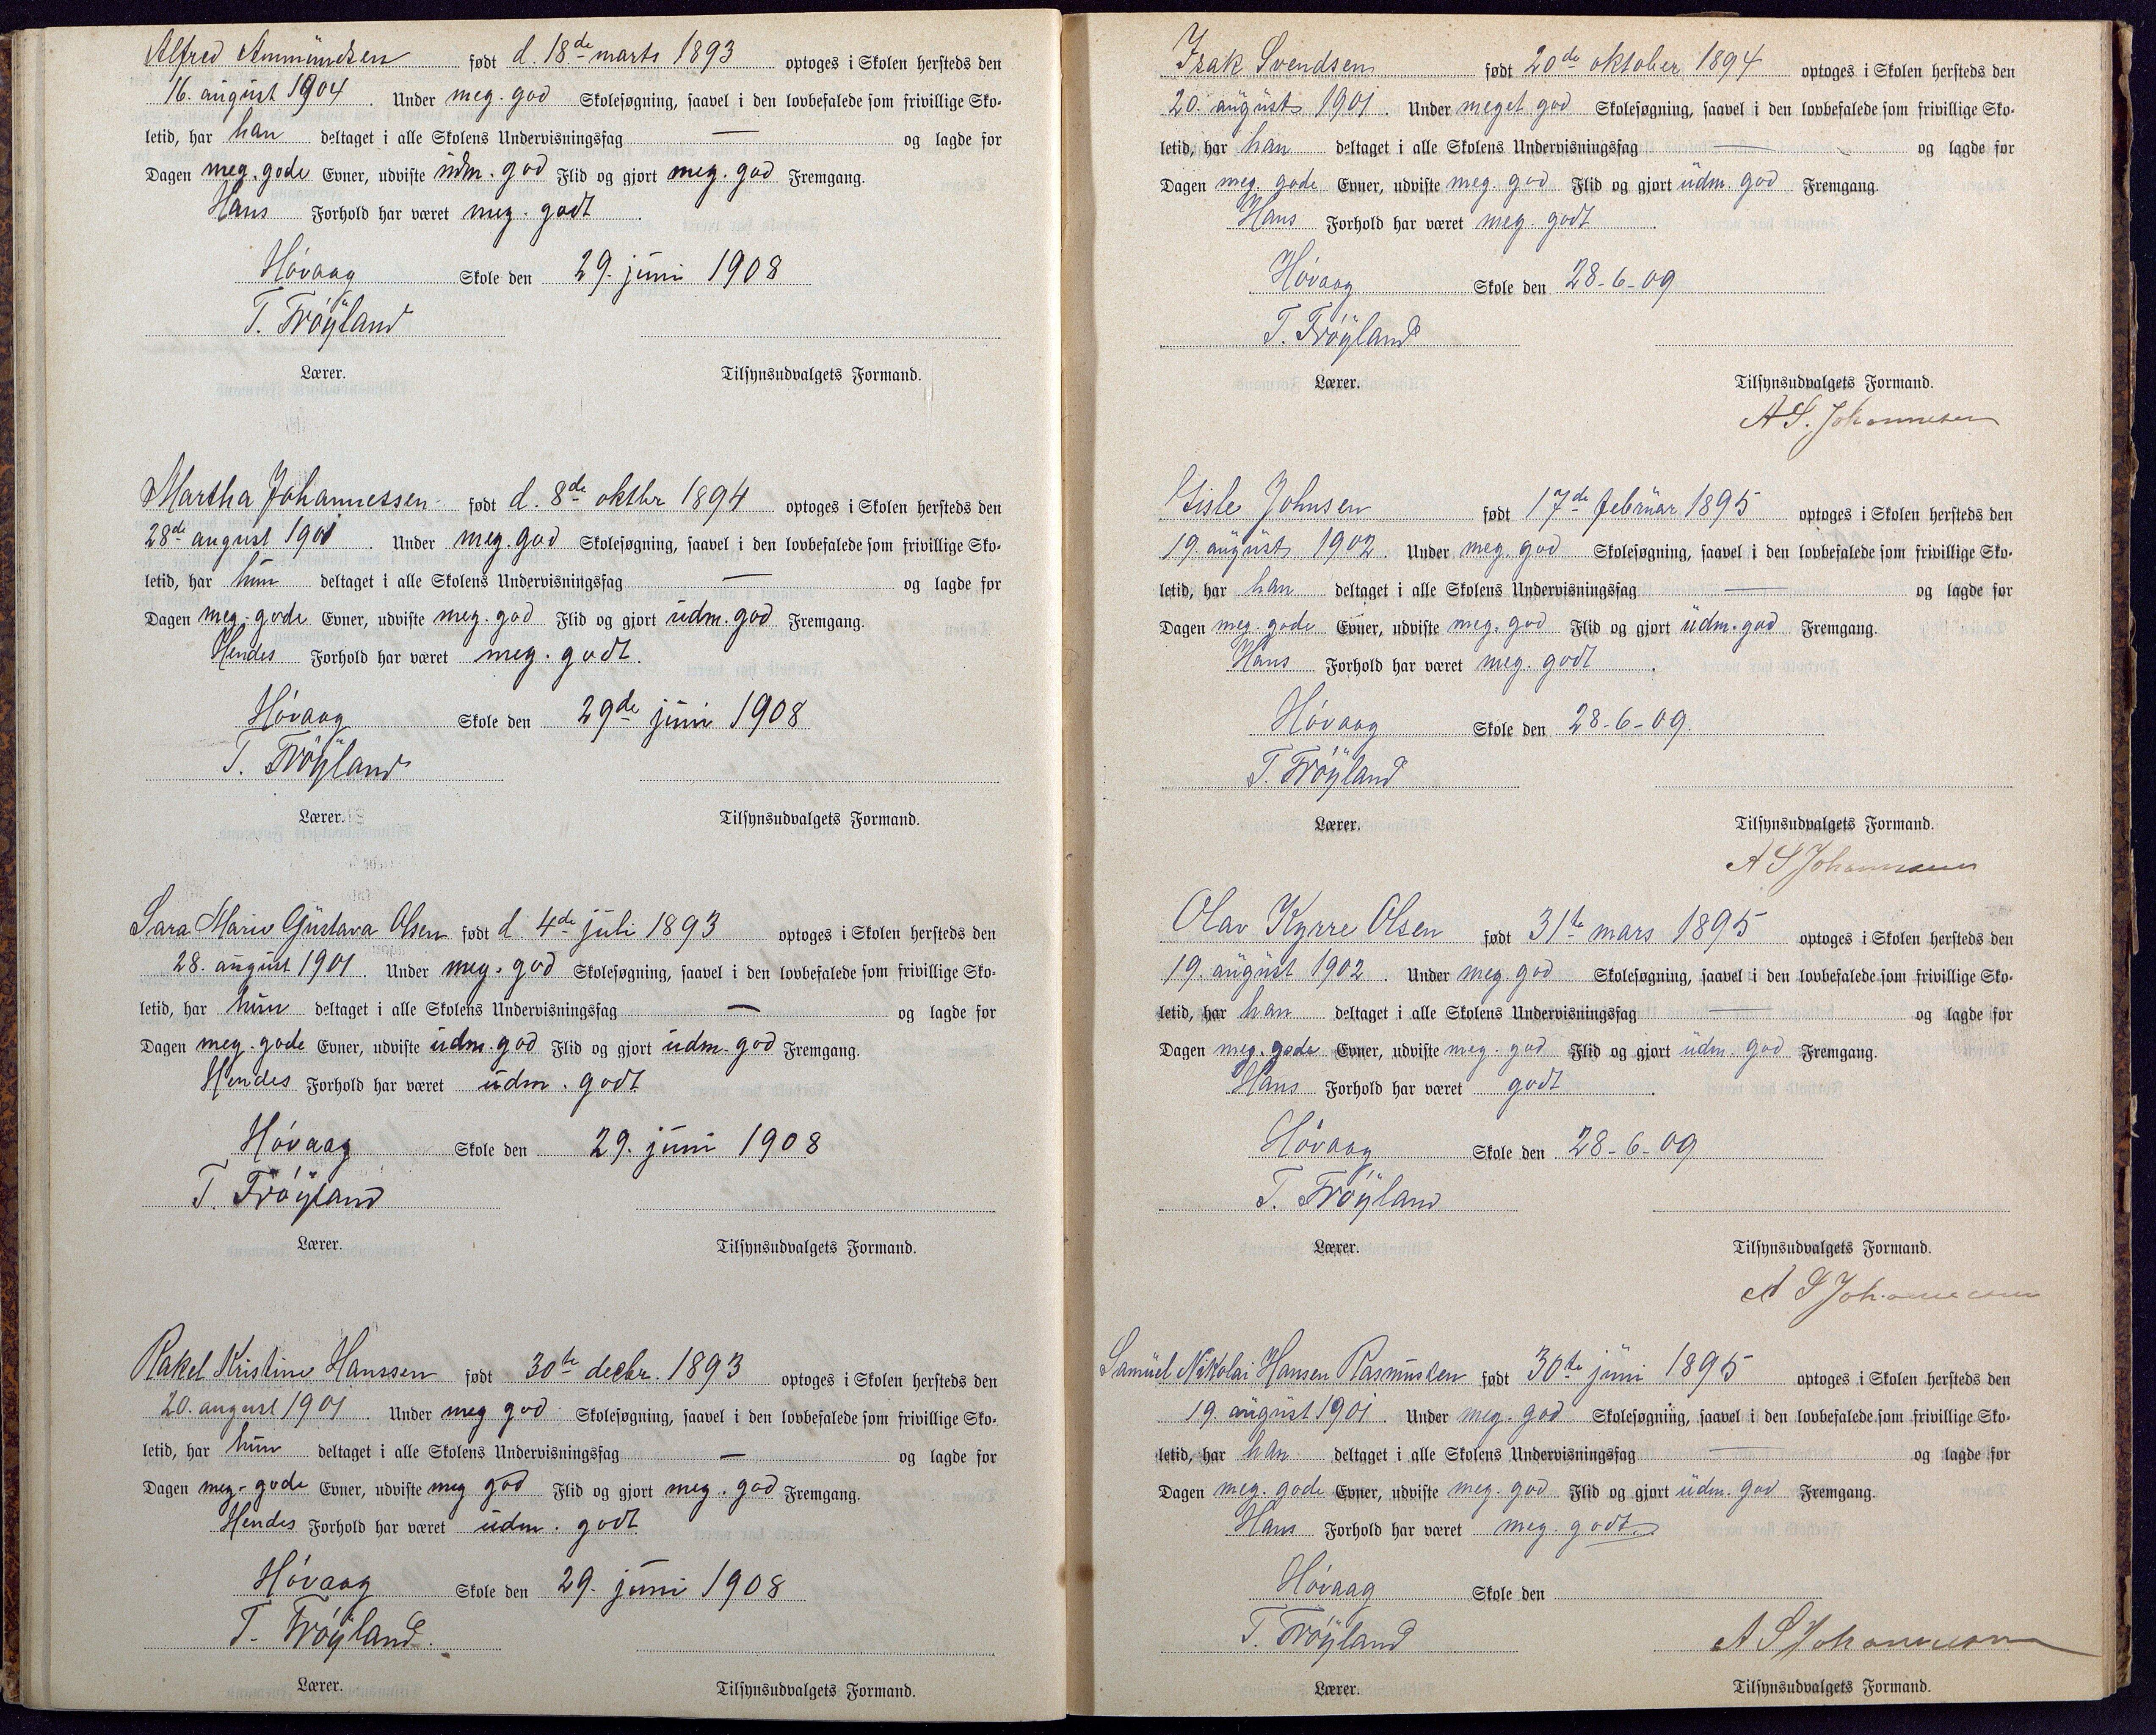 Alfred Ammundsen født d. 18de marts 1893 optoges i Skolen hersteds den
16. august 1904. Under meg. god Skolesøgning, saavel i den lovbefalede som frivillige Sko-
letid, har han deltaget i alle Skolens Undervisningsfag — og lagde for
Dagen meg. gode Evner, udviste udm. god Flid og gjort meg. god Fremgang.
Hans Forhold har været meg. godt.
Høvaag Skole den 29. juni 1908
T. Frøyland
Lærer. Tilsynsudvalgets Formand.
Martha Johannessen født d. 8de oktbr 1894 optoges i Skolen hersteds den
28de august 1901. Under meg. god Skolesøgning, saavel i den lovbefalede som frivillige Sko-
letid, har hun deltaget i alle Skolens Undervisningsfag — og lagde for
Dagen meg. gode Evner, udviste meg. god Flid og gjort udm. god Fremgang.
Hendes Forhold har været meg. godt.
Høvaag Skole den 29de juni 1908
T. Frøyland
Lærer. Tilsynsudvalgets Formand.
Sara Marie Gustava Olsen født d. 4de juli 1893 optoges i Skolen hersteds den
28. august 1901. Under meg. god Skolesøgning, saavel i den lovbefalede som frivillige Sko-
letid, har hun deltaget i alle Skolens Undervisningsfag — og lagde for
Dagen meg. gode Evner, udviste udm. god Flid og gjort udm. god Fremgang.
Hendes Forhold har været udm. godt
Høvaag Skole den 29. juni 1908
T. Frøyland
Lærer. Tilsynsudvalgets Formand.
Rakel Kristine Hanssen født 30te decbr. 1893 optoges i Skolen hersteds den
20. august 1901. Under meg god Skolesøgning, saavel i den lovbefalede som frivillige Sko-
letid, har hun deltaget i alle Skolens Undervisningsfag — og lagde for
Dagen meg. gode Evner, udviste meg god Flid og gjort meg. god Fremgang.
Hendes Forhold har været udm. godt
Høvaag Skole den 29. juni 1908
T. Frøyland.
Lærer. Tilsynsudvalgets Formand.
Isak Svendsen født 20de oktober 1894 optoges i Skolen hersteds den
20. august 1901. Under meget god Skolesøgning, saavel i den lovbefalede som frivillige Sko-
letid, har han deltaget i alle Skolens Undervisningsfag — og lagde for
Dagen meg. gode Evner, udviste meg. god Flid og gjort udm. god Fremgang.
Hans Forhold har været meg. godt.
Høvaag Skole den 28-6-09
T. Frøyland
Lærer. Tilsynsudvalgets Formand.
A S. Johannesen
Gisle Johnsen født 17de februar 1895 optoges i Skolen hersteds den
19. august 1902. Under meg. god Skolesøgning, saavel i den lovbefalede som frivillige Sko-
letid, har han deltaget i alle Skolens Undervisningsfag — og lagde for
Dagen meg. gode Evner, udviste meg. god Flid og gjort udm. god Fremgang.
Hans Forhold har været meg. godt.
Høvaag Skole den 28-6-09.
T. Frøyland
Lærer. Tilsynsudvalgets Formand.
A S Johannesen
Olav Kyrre Olsen født 31te mars 1895 optoges i Skolen hersteds den
19. august 1902. Under meg. god Skolesøgning, saavel i den lovbefalede som frivillige Sko-
letid, har han deltaget i alle Skolens Undervisningsfag — og lagde for
Dagen meg. gode Evner, udviste meg. god Flid og gjort udm. god Fremgang.
Hans Forhold har været godt.
Høvaag Skole den 28-6-09
T. Frøyland
Lærer. Tilsynsudvalgets Formand.
A S Johannesen
Samuel Nikolai Hansen Rasmussen født 30te juni 1895 optoges i Skolen hersteds den
19. august 1901. Under meg. god Skolesøgning, saavel i den lovbefalede som frivillige Sko-
letid, har han deltaget i alle Skolens Undervisningsfag — og lagde for
Dagen meg. gode Evner, udviste meg. god Flid og gjort udm. god Fremgang.
Hans Forhold har været meg. godt.
Høvaag Skole den
T. Frøyland A S Johannesen
Lærer. Tilsynsudvalgets Formand.